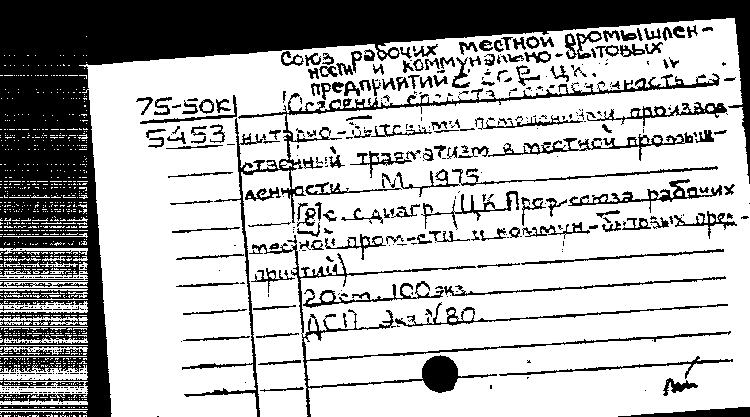 Союз рабочих местной промышлен-
ности и коммунально-бытовых
предприятий СССР. ЦК.
75-50к
Освоение средств, обеспеченность са-
5453 нитарно-бытовыми помещениями, производ-
ственный травматизм в местной промыш-
ленности. М., 1975.
[8]с. с диагр. (ЦК Проф-союза рабочих
местной пром-сти и коммун.-бытовых пред-
приятий).
20см. 100экз.
ДСП Экз.N80.